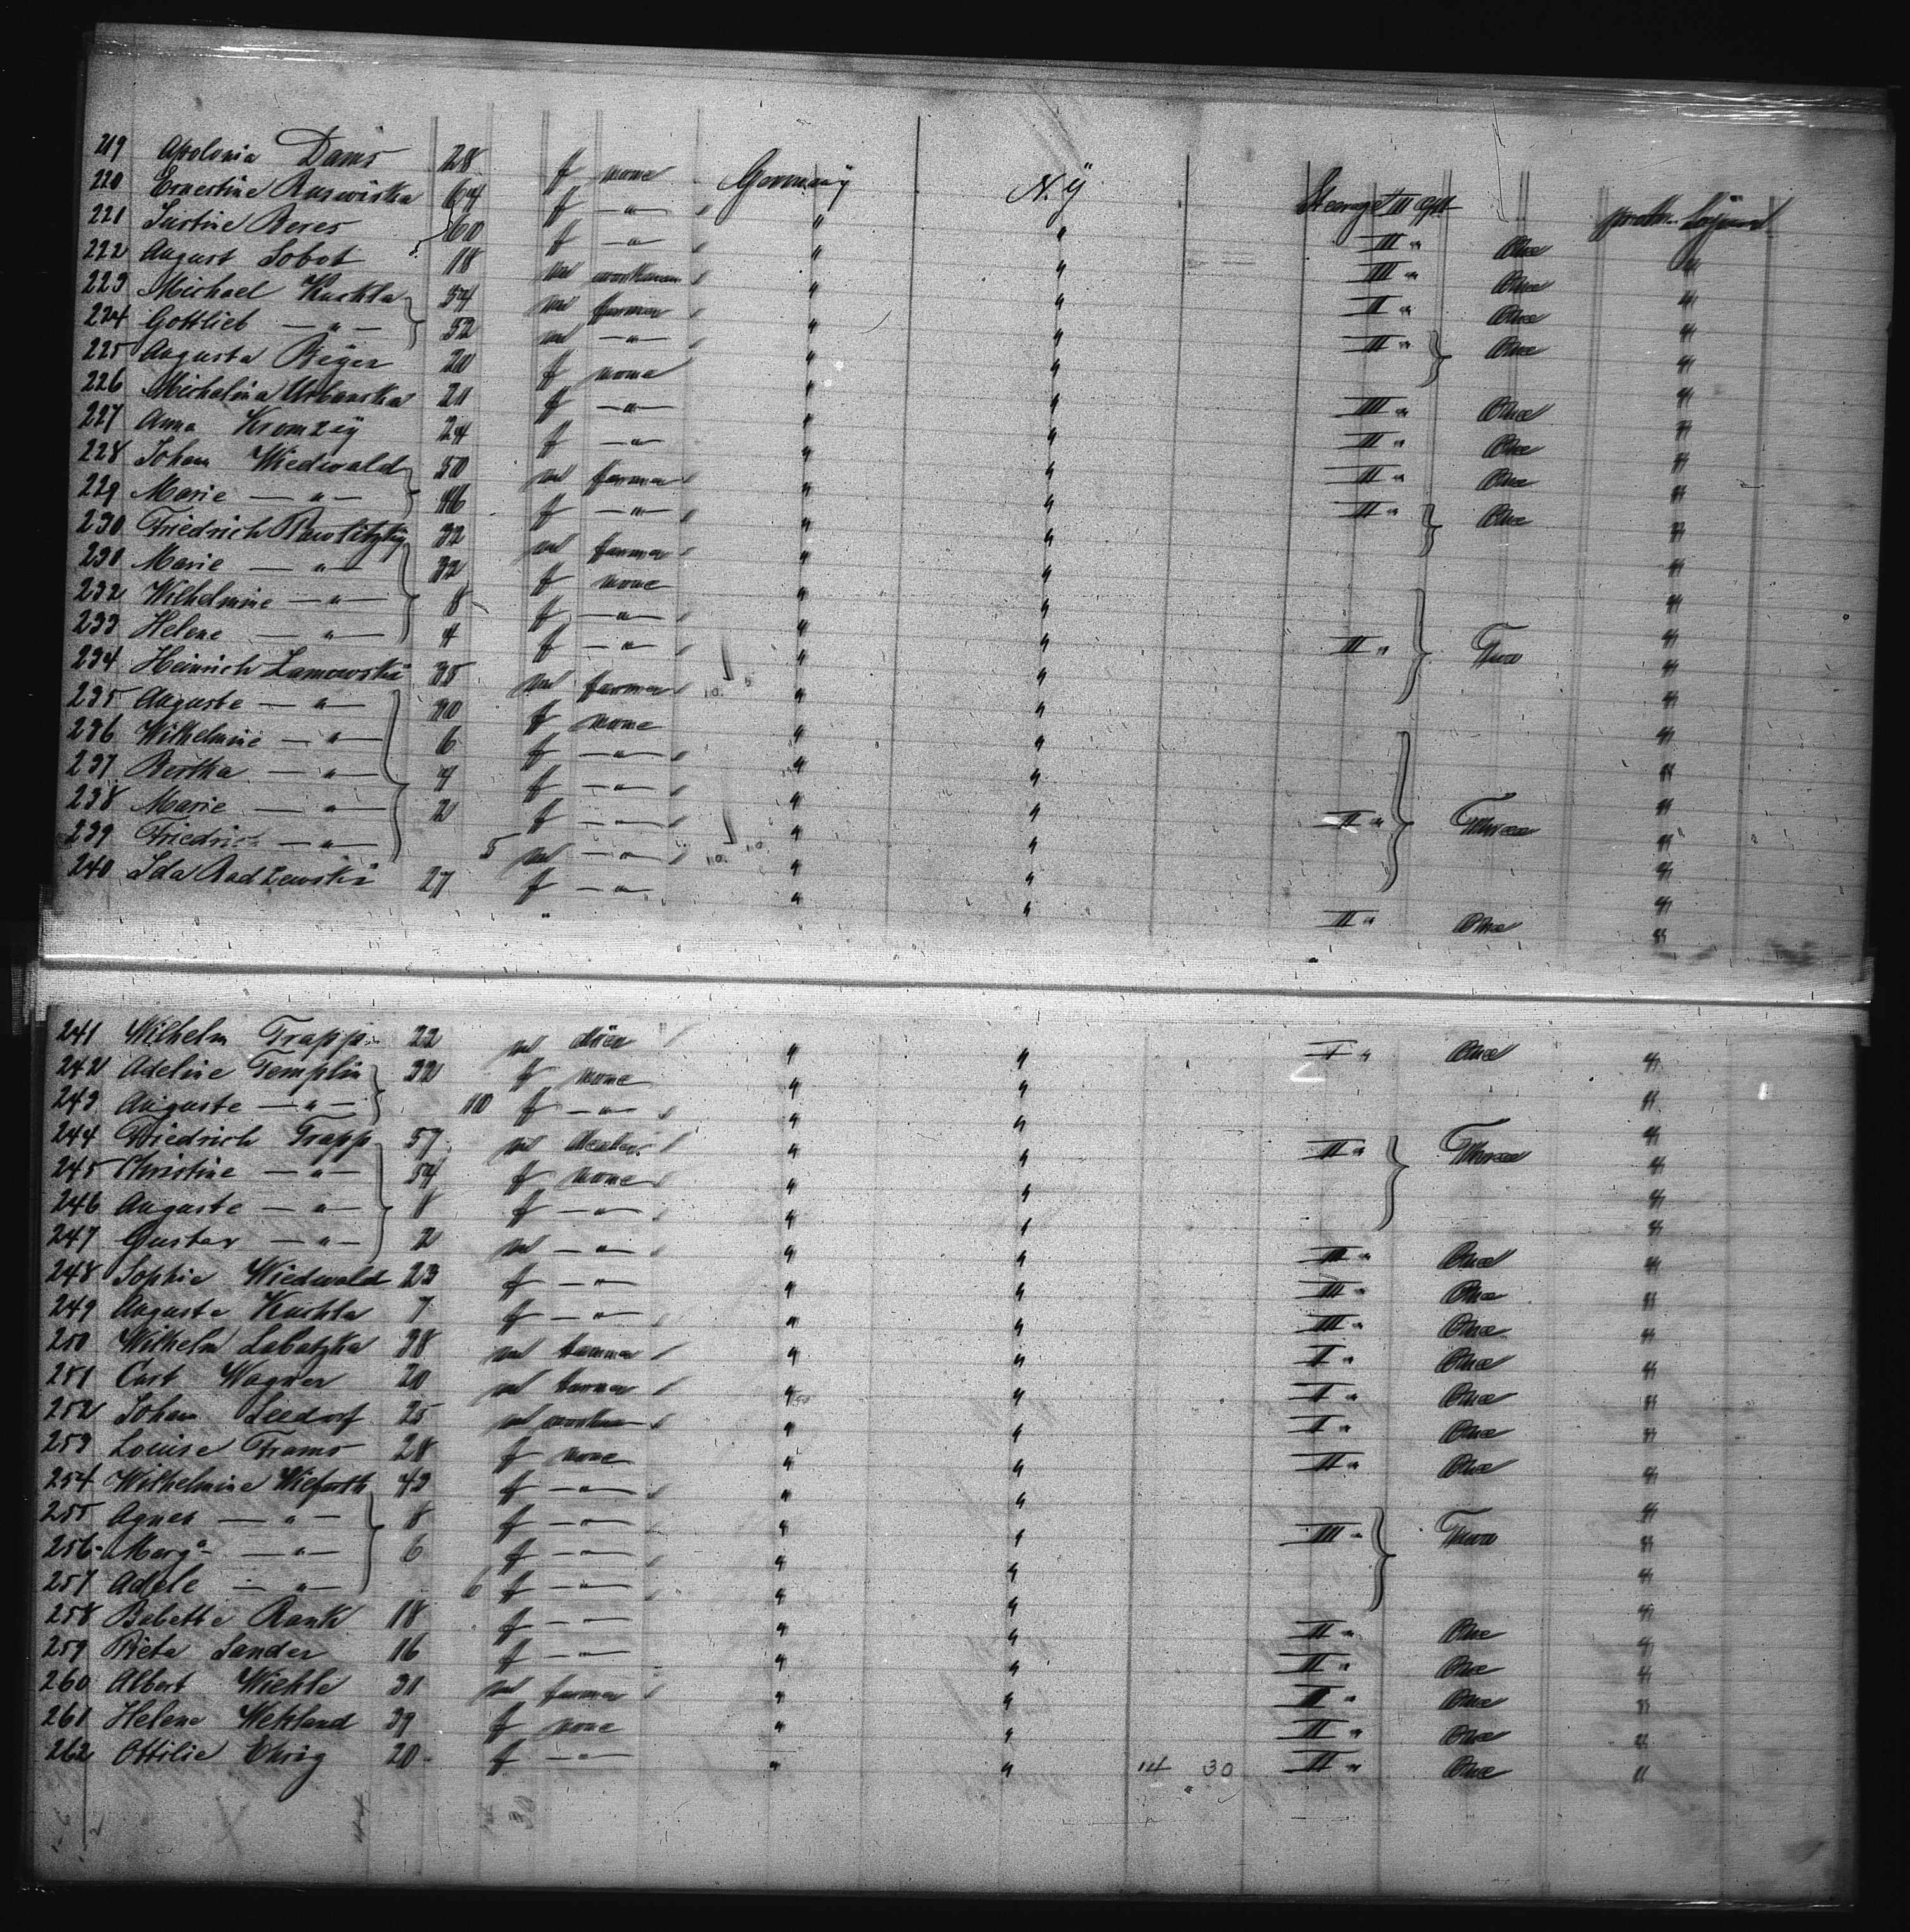 219 Apolonia Dams 28 f none Germany N.Y Steerage III
220 Ernestine Ruswiska 64 f — " — " " III " One "
221 Justine Beres 60 f — " — " " III " One "
222 August Sobot 18 m workman " " II " One "
223 Michael Kuchla 54 m farmer " " III " One "
224 Gottlieb — " — 52 m — " — " " "
225 Augusta Beyer 20 f none " " III " One "
226 Michalina Urbanska 21 f — " — " " II " One "
227 Anna Kromzey 24 f — " — " " II " One "
228 Johann Wiedwald 50 m farmer " " II " One "
229 Marie — " — 46 f — " — " " "
230 Friedrich 32 m farmer " " "
231 Marie — " — 32 f none " " "
232 Wilhelmine — " — 8 f — " — " " III " Two "
233 Helene — " — 4 f — " — " " "
234 Heinrich Lamowski 35 m farmer " " "
235 Auguste — " — 40 f none " " "
236 Wilhelmine — " — 6 f — " — " " "
237 Bertha — " — 4 f — " — " " II " Three "
238 Marie — " — 2 f — " — " " "
239 Friedrich — " — 5 m — " — " " "
240 Ida Radzewski 27 f — " — " " II " One "
241 Wilhelm Trapp 22 m " " I " One "
242 Adeline Templin 32 f none " " "
243 Auguste — " — 10 f — " — " " "
244 Friedrich Trapp 57 m " " II " Three "
245 Christine — " — 54 f none " " "
246 Auguste — " — 8 f — " — " " "
247 Gustav — " — 2 m — " — " " III " One "
248 Sophie Wiedwald 23 f — " — " " III " One "
249 Auguste Kuchla 7 f — " — " " III " One "
250 Wilhelm Labatzka 38 m farmer " " I " One "
251 Curt Wagner 20 m farmer " " I " One "
252 Johann Seedorf 25 m workman " " I " One "
253 Louise Frams 28 f none " " II " One "
254 Wilhelmine Wieforth 43 f — " — " " "
255 Agnes — " — 8 f — " — " " III " Two "
256 Marg — " — 6 f — " — " " "
257 Adele — " — 6 f — " — " " "
258 Babette Rank 18 f — " — " " II " One "
259 Rieta Sander 16 f — " — " " II " One "
260 Albert Wiehle 31 m farmer " " II " One "
261 Helene Wekland 39 f none " " II " One "
262 Ottilie Ehrig 20 f — " — " " 14 30 II " One "